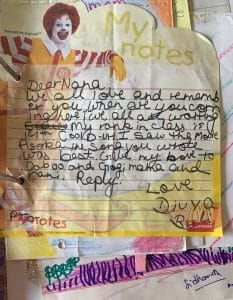 My
notes
Dear Nana
We all love and remem
er you when are you com
ing here we all are waiting
My rank in class is 1
I saw the Movie
Asoka the song you wrote
was best. Give my love to
and
nani. Reply.
Love
Divya
notes
Sidhanth